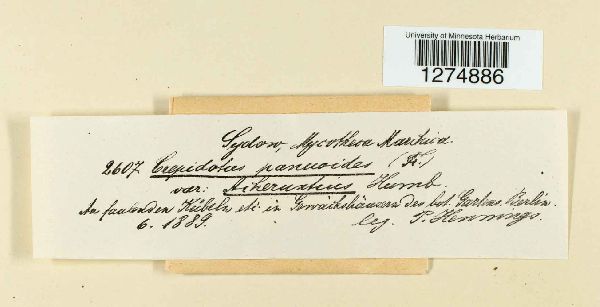 University of Minnesota Herbarium
1274886
Sydow, Mycotheca Marchica.
2607 Crepidotus panuoides (Fr.)
var: Acheruntius Humb.
An faulenden Kübeln etc in Gewächshäusern des bot. Gartens Berlin.
6. 1889. leg. P. Hennings.